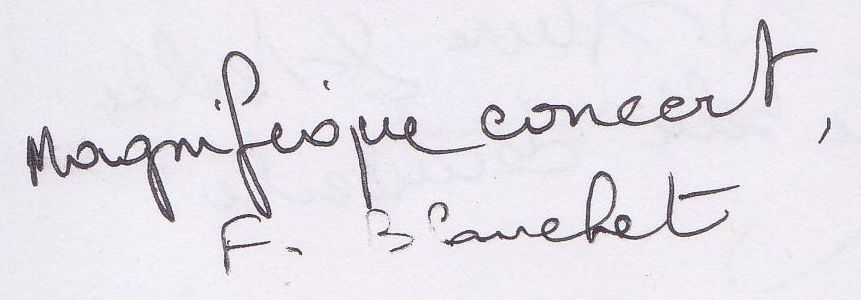 Magnifique concert,
F. Blanchet